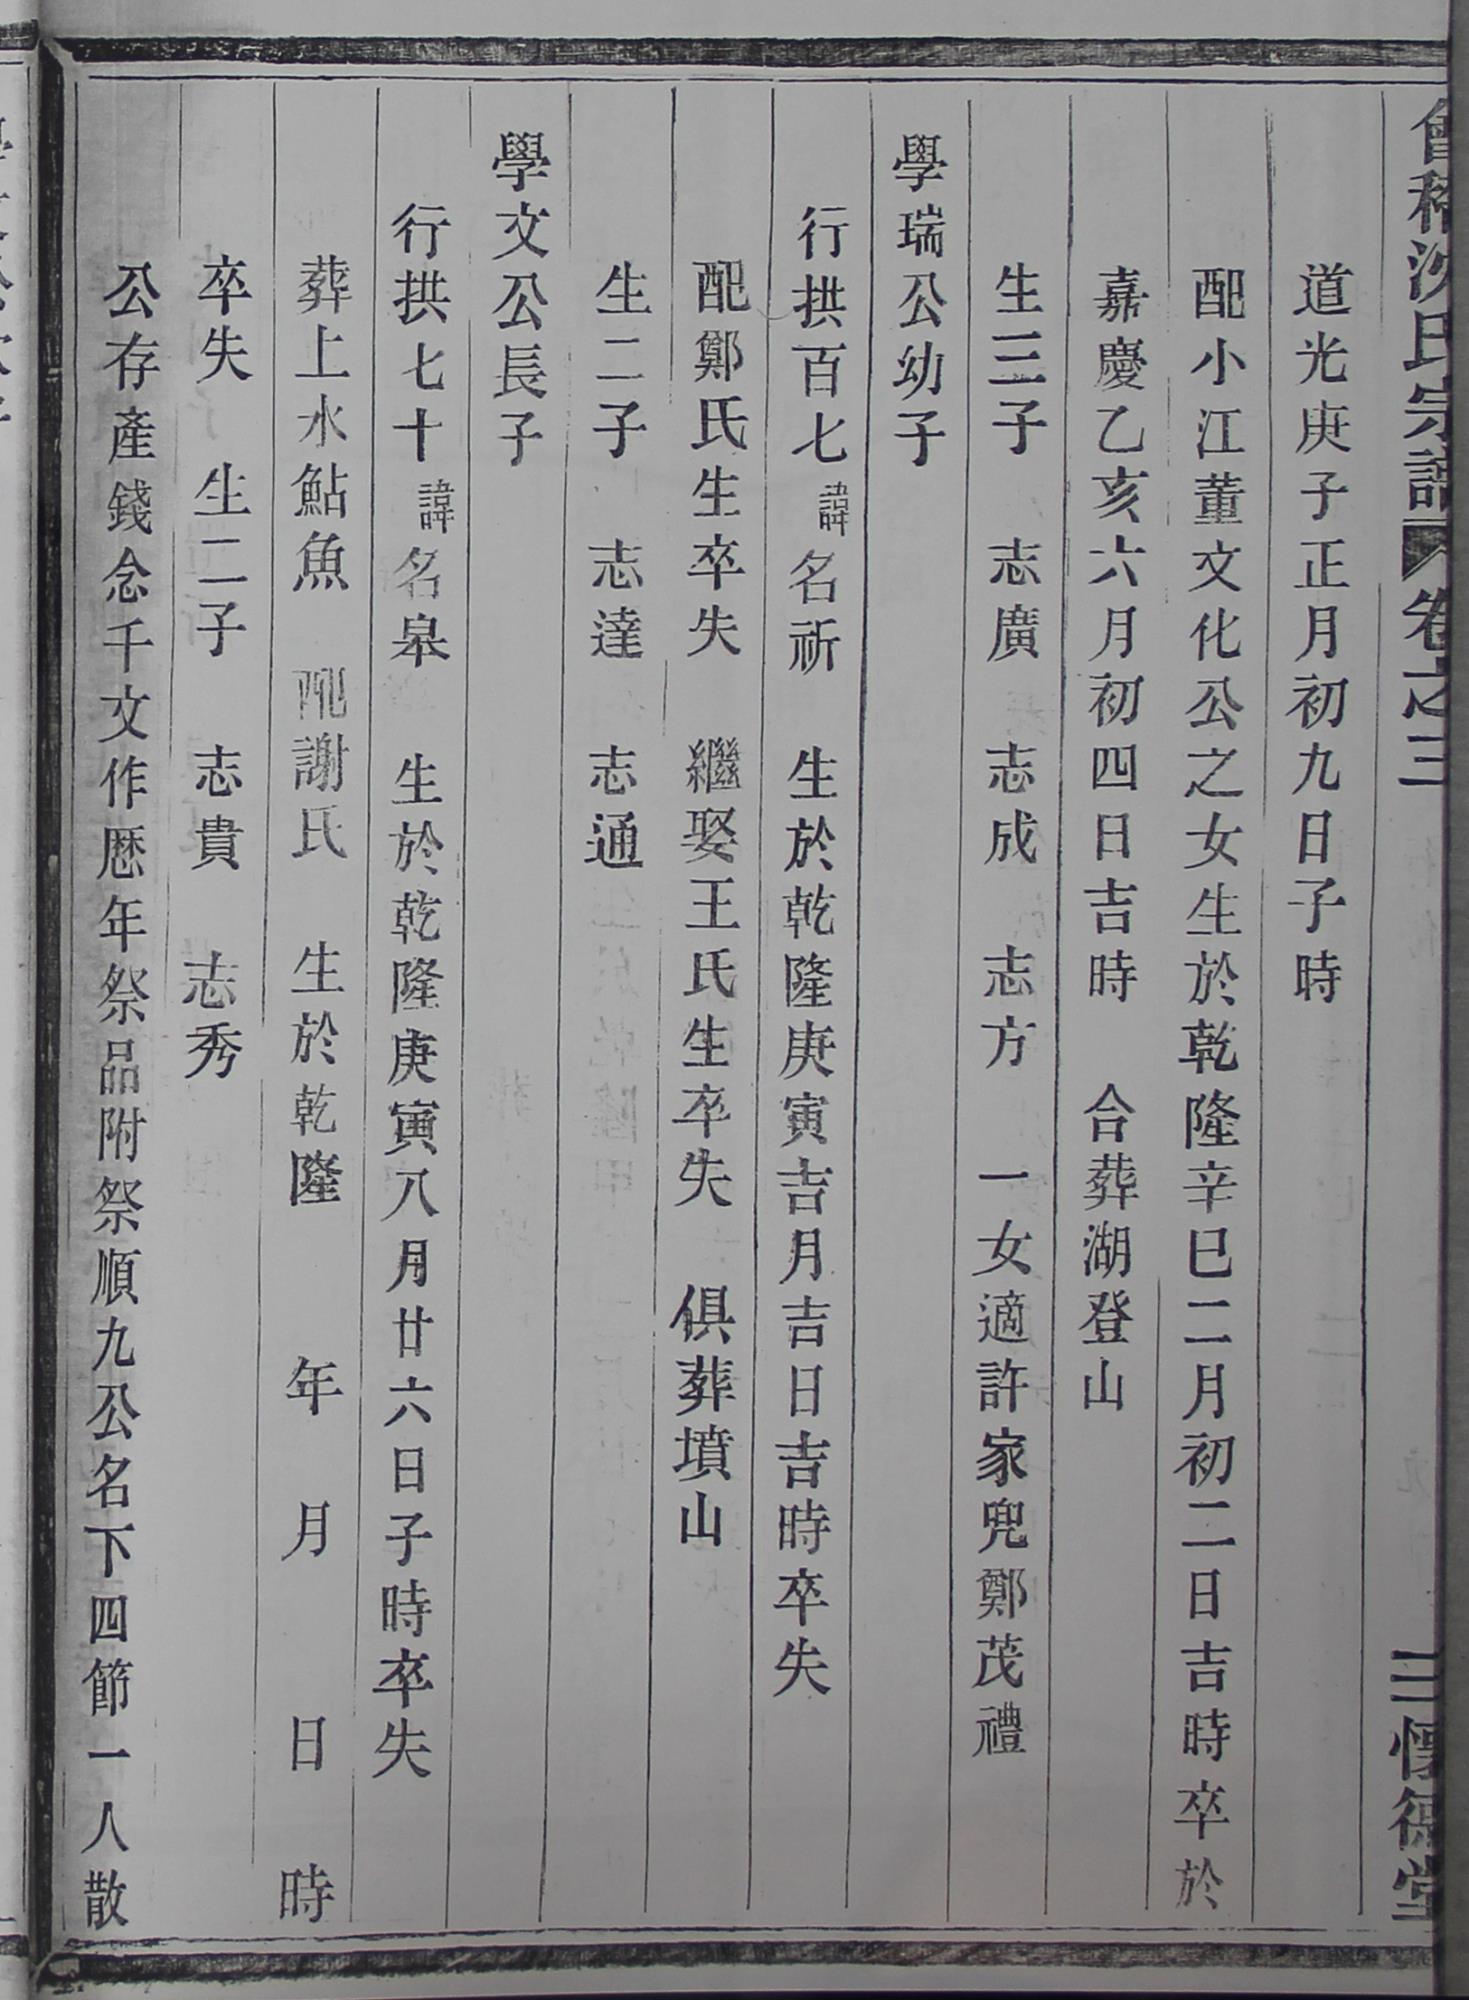 會稽沈氏宗譜 卷之三 三 懷德堂
道光庚子正月初九日子時
配小江董文化公之女生於乾隆辛巳二月初二日吉時卒於
嘉慶乙亥六月初四日吉時 合葬湖登山
生三子 志廣 志成 志方 一女適許家兜鄭茂禮
學瑞公幼子
行拱百七諱名祈 生於乾隆庚寅吉月吉日吉時卒失
配鄭氏生卒失 繼娶王氏生卒失 俱葬墳山
生二子 志達 志通
學文公長子
行拱七十諱名皋 生於乾隆庚寅八月廿六日子時卒失
葬上水鮎魚 配謝氏 生於乾隆 年 月 日 時
卒失 生二子 志貴 志秀
公存產錢念千文作歷年祭品附祭順九公名下四節一人散